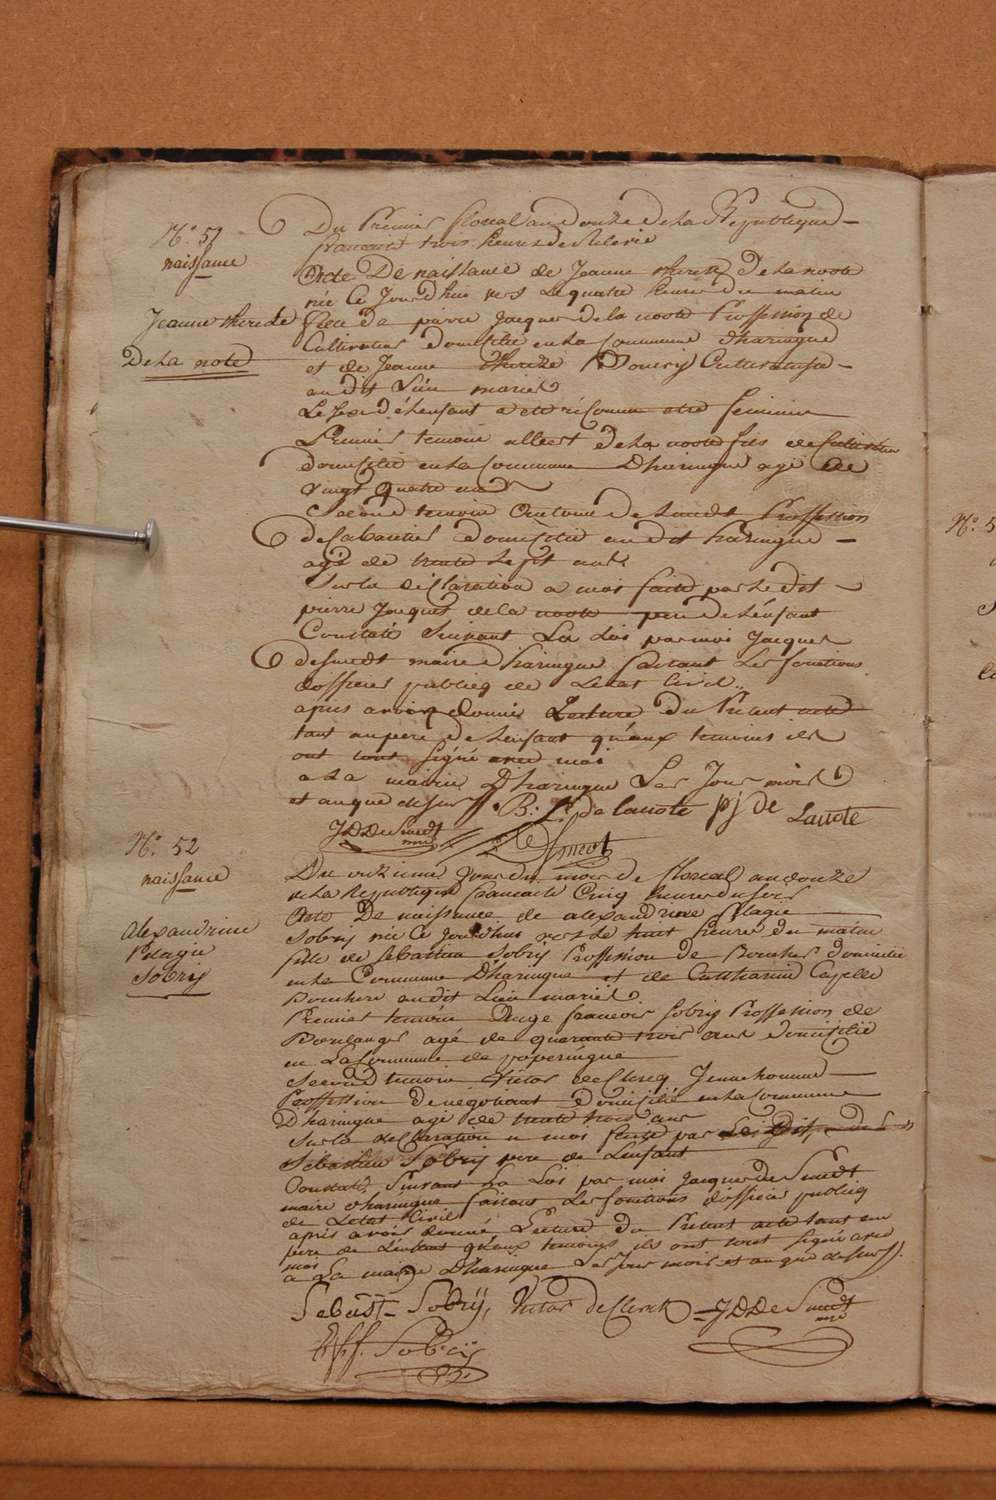 N.° 51
naissance
Jeanne therese
De La note
Du Premier floreal an douze De La Republique
francaise trois heures de Relevée
Acte De naissance de Jeanne therese De La noote
née Ce Jourdhui vers Le quatre heure du matin
fille de pierre Jacques de la noote Proffession de
Cultivateur domicilié en La Commune dharingue
et de Jeanne therese Cultivateuse
au dit Lieu mariés
Le Sexe de Lenfant a été réconnu etre feminin
Premier temoin albert De La noote fils de Cultivateur
domicilié en La Commune Dharingue agé de
vingt quatre ans
Second temoin Antoine de Smedt Proffession
de Sabottier domicilié au dit haringue
agé de trente Sept ans
Sur la déclaration a moi faite par Le dit
pierre Jacques de la noote pere de Lénfant
Constaté Suivant La Loi par moi Jacques
desmedt maire dharingue faisant Les fonctions
dofficier publicq de Letat Civil
apres avoir donné Lecture du Present acte
tant au pere de Lenfant qu'aux temoins ils
ont tous Signé avec moi
a La mairie Dharingue Les Jour mois
et an que desus
de lanote pj de Lanote
JDDeSmedt
De Smedt
N.° 52
naissance
alexandrine
Pelagie
Sobry
Du jour du mois de floreal an douze
de La Republique francaise Cinq heures du soir
Acte De naissance de alexandrine Pelagie
Sobry née Ce jourdhui vers Le huit heure du matin
fille de Sebastien Sobry Proffession de Boucher domicilié
en La Commune Dharingue et de Catharine Capelle
Bouchere au dit Lieu mariés
Premier temoin Ange francois Sobry Proffession de
Boulanger agé de quarante trois ans domicilié
en La Commune de poperingue
Second temoin Victor deClercq Jeune homme
Proffession De negotiant domicilié en La Commune
Dharingue agé de trente trois ans
Sur la declaration a moi faite par Le Dit
Sebastien Sobry pere de Lenfant
Constaté Suivant La Loi par moi Jacques De Smedt
maire dharingue faisant Les fonctions dofficier publicq
de Letat Civil
apres avoir donné Lecture du Present acte tant au
pere de Lenfant qu'aux temoins ils ont tous Signé avec
moi
a La mairie Dharingue Les jour mois et an que desus
Sebast. Sobry, Victor deClerck JDDeSmedt
Sobry
N.° 5